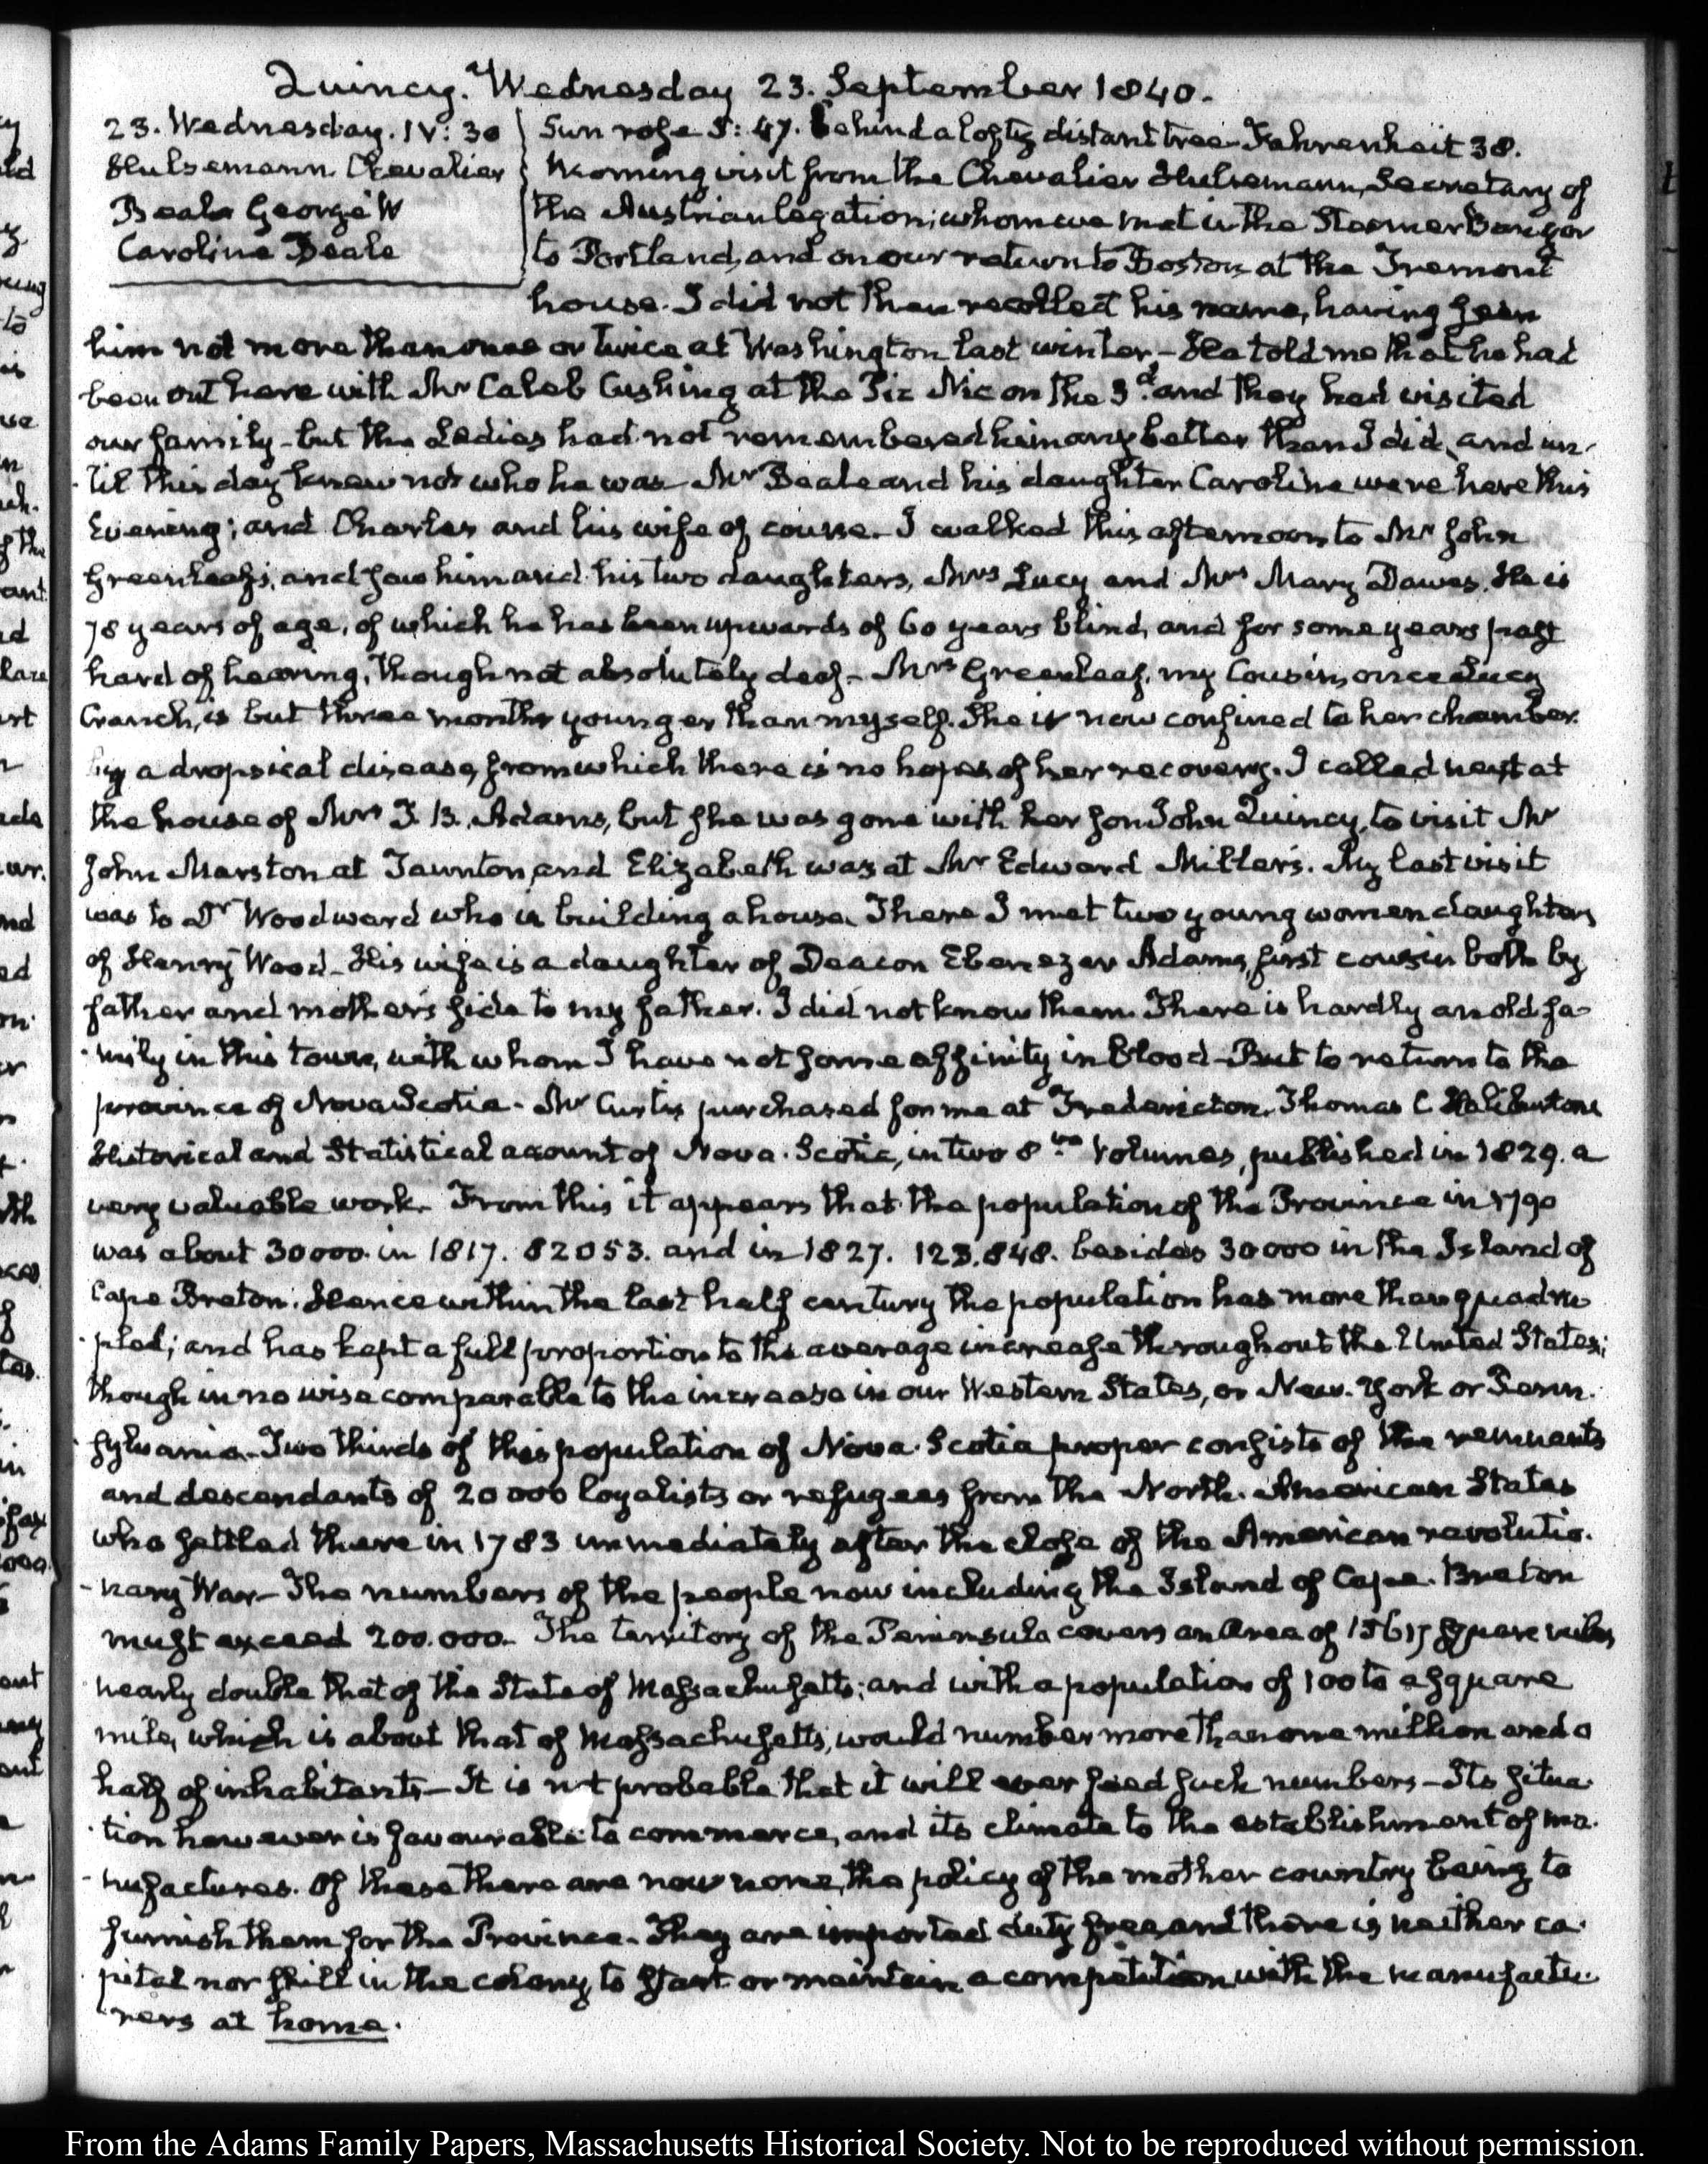 Quincy. Wednesday 23. September 1840.
23. Wednesday. IV: 30
Hulsemann. Chevalier
Beale George W
Caroline Beale
Sun rose 5: 47. behind a lofty distant tree. Fahrenheit 38.
Morning visit from the Chevalier Hulsemann, Secretary of
the Austrian legation; whom we met in the Steamer Bangor
to Portland, and on our return to Boston, at the Tremont
house. I did not then recollect his name, having seen
him not more than once or twice at Washington last winter – He told me that he had
been out here with Mr Caleb Cushing at the Pic Nic on the 3d. and they had visited
our family – but the Ladies had not remembered him any better than I did, and un-
-til this day knew not who he was – Mr Beale and his daughter Caroline were here this
Evening; and Charles and his wife of course. I walked this afternoon to Mr John
Greenleaf's, and saw him and his two daughters, Mrs Lucy and Mrs Mary Dawes. He is
78 years of age, of which he has been upwards of 60 years blind, and for some years past
hard of hearing, though not absolutely deaf – Mrs Greenleaf, my Cousin, once Lucy
Cranch, is but three months younger than myself. She is now confined to her chamber
by a dropsical disease, from which there is no hopes of her recovery. I called next at
the house of Mrs T. B. Adams, but she was gone with her son John Quincy, to visit Mr
John Marston at Taunton, and Elizabeth was at Mr Edward Miller's. My last visit
was to Dr Woodward who is building a house. There I met two young women daughters
of Henry Wood – His wife is a daughter of Deacon Ebenezer Adams, first cousin both by
father and mother's side to my father. I did not know them. There is hardly an old fa-
-mily in this town, with whom I have not some affinity in blood – But to return to the
province of Nova Scotia – Mr Curtis purchased for me at Fredericton, Thomas C Haliburton's
Historical and Statistical account of Nova-Scotia, in two 8vo Volumes, published in 1829. a
very valuable work. From this it appears that the population of the Province in 1790
was about 30000. in 1817. 82053. and in 1827. 123.848. besides 30000 in the Island of
Cape Breton. Hence within the last half century the population has more than quadru
-pled; and has kept a full proportion to the average increase throughout the United States;
though in no wise comparable to the increase in our Western States, or New-York or Penn-
-sylvania – Two thirds of this population of Nova-Scotia proper consists of the remnants
and descendants of 20000 loyalists or refugees from the North-American States
who settled there in 1783 immediately after the close of the American revolutio-
-nary War – The numbers of the people now including the Island of Cape-Breton
must exceed 200.000. The territory of the Peninsula covers an Area of 15617 square miles
nearly double that of the State of Massachusetts; and with a population of 100 to a square
mile, which is about that of Massachusetts, would number more than one million and a
half of inhabitants – It is not probable that it will ever feed such numbers – Its situa-
-tion however is favourable to commerce, and its climate to the establishment of ma-
-nufactures. Of these there are now none, the policy of the mother country being to
furnish them for the Province – They are imported duty free and there is neither ca-
pital nor skill in the colony to start or maintain a competition with the manufactu-
-rers at home.
From the Adams Family Papers, Massachusetts Historical Society. Not to be reproduced without permission.